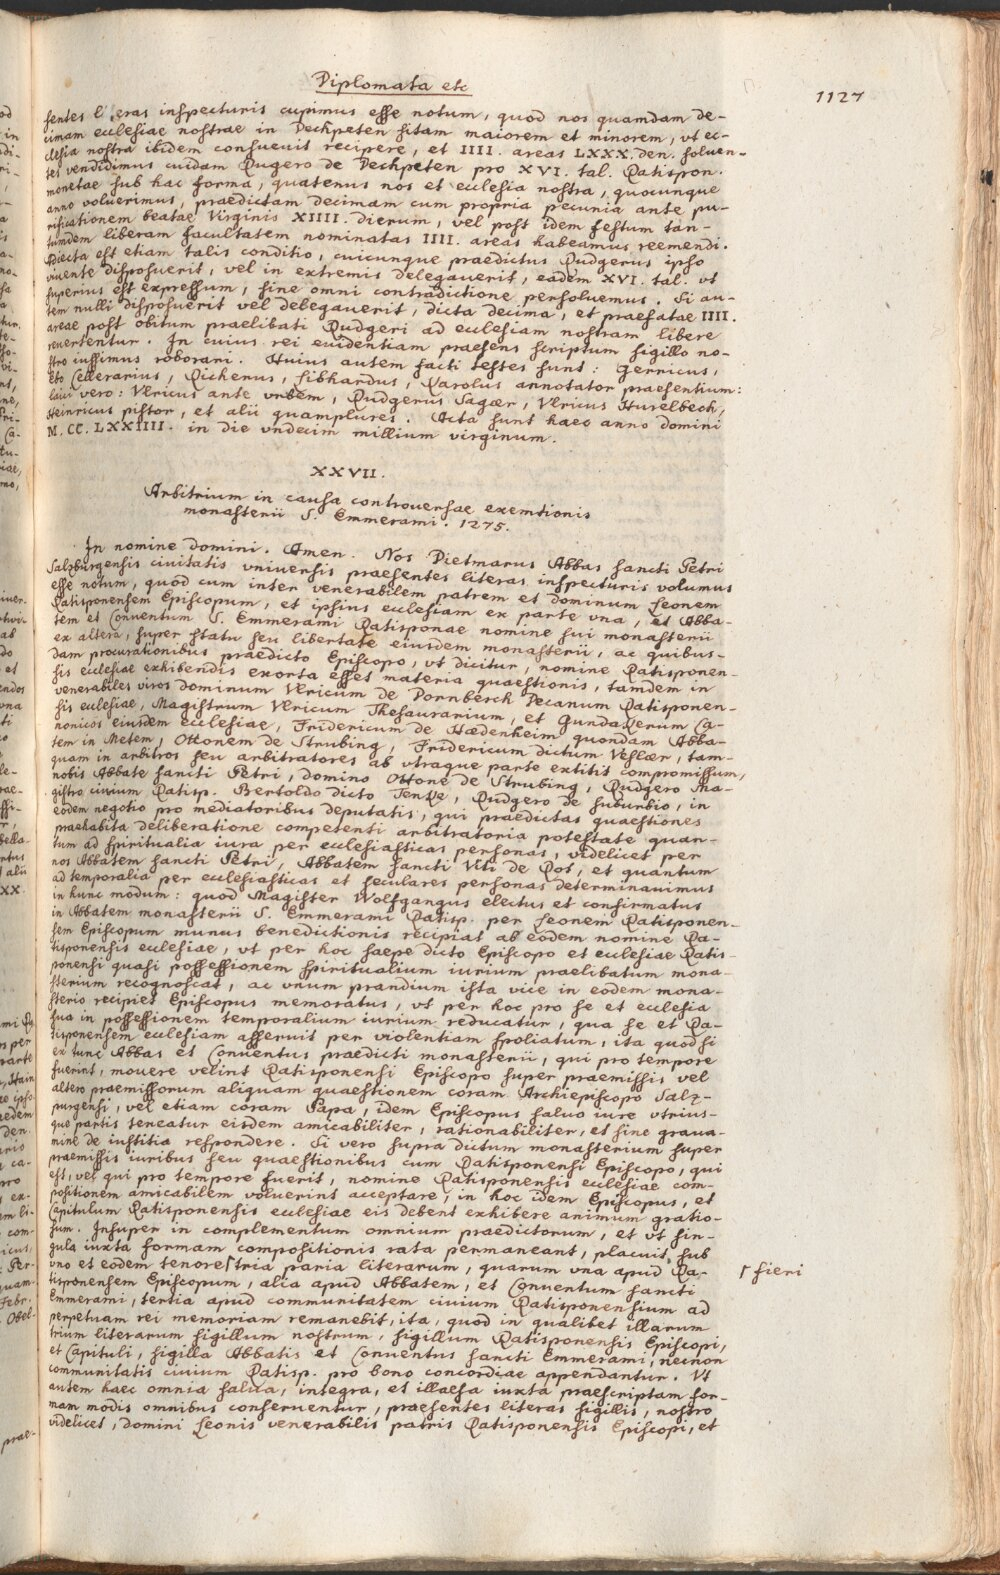 Diplomata etc
1127
sentes l eras inspecturis cupimus esse notum, quod nos quamdam de-
cimam ecclesiae nostrae in Dechpeten sitam maiorem et minorem, vt ec-
clesia nostra ibidem consueuit recipere, et IIII. areas LXXX. den. soluen-
tes vendidimus cuidam Rugero de Dechpeten pro XVI. tal. Ratispon.
monetae sub hac forma, quatenus nos et ecclesia nostra, quocunque
anno voluerimus, praedictam decimam cum propria pecunia ante pu-
rificationem beatae Virginis XIIII. dierum, vel post idem festum tan-
tumdem liberam facultatem nominatas IIII. areas habeamus reemendi.
Adiecta est etiam talis conditio, cuicunque praedictus Rudgerus ipso
viuente disposuerit, vel in extremis delegauerit, eadem XVI. tal. vt
superius est expressum, sine omni contradictione persoluemus. Si au-
tem nulli disposuerit vel delegauerit, dicta decima, et praefatae IIII.
areae post obitum praelibati Rudgeri ad ecclesiam nostram libere
reuertentur. In cuius rei euidentiam praesens scriptum sigillo no-
stro iussimus roborari. Huius autem facti testes sunt: Gernicus,
Eto Cellerarius, Richerus, Sibhardus, Karolus annotator praesentium:
laici vero: Vlricus ante vrbem, Rudgerus Sagær, Vlricus Hurelbech,
Heinricus pistor, et alii quamplures. Acta sunt haec anno domini
M. CC. LXXIIII. in die vndecim millium virginum.
XXVII.
Arbitrium in causa controuersae exemtionis
monasterii S. Emmerami. 1275.
In nomine domini. Amen. Nos Dietmarus Abbas sancti Petri
Salzburgensis ciuitatis vniuersis praesentes literas inspecturis volumus
esse notum, quod cum inter venerabilem patrem et dominum Leonem
Ratisponensem Episcopum, et ipsius ecclesiam ex parte vna, et Abba-
tem et Conuentum S. Emmerami Ratisponae nomine sui monasterii
ex altera, super statu seu libertate eiusdem monasterii, ac quibus-
dam procurationibus praedicto Episcopo, vt dicitur, nomine Ratisponen-
sis ecclesiae exhibendis exorta esset materia quaestionis, tamdem in
venerabiles viros dominum Vlricum de Dornberch Decanum Ratisponen-
sis ecclesiae, Magistrum Vlricum Thesaurarium, et Gundakerum Ca-
nonicos eiusdem ecclesiae, Fridericum de Hædenheim quondam Abba-
tem in Metem, Ottonem de Strubing, Fridericum dictum Veslær, tam-
quam in arbitros seu arbitratores ab vtraque parte extitit compromissum,
nobis Abbate sancti Petri, domino Ottone de Strubing, Rudgero Ma-
gistro ciuium Ratisp. Bertoldo dicto Tenke, Rudgero de suburbio, in
eodem negotio pro mediatoribus deputatis, qui praedictas quaestiones
praehabita deliberatione competenti arbitratoria potestate quan-
tum ad spiritualia iura per ecclesiasticas personas, videlicet per
nos Abbatem sancti Petri, Abbatem sancti Viti de Rot, et quantum
ad temporalia per ecclesiasticas et seculares personas determinauimus
in hunc modum: quod Magister Wolfgangus electus et confirmatus
in Abbatem monasterii S. Emmerami Ratisp. per Leonem Ratisponen-
sem Episcopum munus benedictionis recipiat ab eodem nomine Ra-
tisponensis ecclesiae, vt per hoc saepe dicto Episcopo et ecclesiae Ratis-
ponensi quasi possessionem spiritualium iurium praelibatum mona-
sterium recognoscat, ac vnum prandium ista vice in eodem mona-
sterio recipiet Episcopus memoratus, vt per hoc pro se et ecclesia
sua in possessionem temporalium iurium reducatur, qua se et Ra-
tisponensem ecclesiam asseruit per violentiam spoliatum, ita quod si
ex tunc Abbas et Conuentus praedicti monasterii, qui pro tempore
fuerint, mouere velint Ratisponensi Episcopo super praemissis vel
altero praemissorum aliquam quaestionem coram Archiepiscopo Salz-
purgensi, vel etiam coram Papa, idem Episcopus saluo iure vtrius-
que partis teneatur eisdem amicabiliter, rationabiliter, et sine graua-
mine de iustitia respondere. Si vero supra dictum monasterium super
praemissis iuribus seu quaestionibus cum Ratisponensi Episcopo, qui
est, vel qui pro tempore fuerit, nomine Ratisponensis ecclesiae com-
positionem amicabilem voluerint acceptare, in hoc idem Episcopus, et
Capitulum Ratisponensis ecclesiae eis debent exhibere animum gratio-
sum. Insuper in complementum omnium praedictorum, et vt sin-
gula iuxta formam compositionis rata permaneant, placuit, sub
vno et eodem tenore⌈tria paria literarum, quarum vna apud Ra-
⌈ fieri
tisponensem Episcopum, alia apud Abbatem, et Conuentum sancti
Emmerami, tertia apud communitatem ciuium Ratisponensium ad
perpetuam rei memoriam remanebit, ita, quod in qualibet illarum
trium literarum sigillum nostrum, sigillum Ratisponensis Episcopi,
et Capituli, sigilla Abbatis et Conuentus sancti Emmerami, necnon
communitatis ciuium Ratisp. pro bono concordiae appendantur. Vt
autem haec omnia salua, integra, et illaesa iuxta praescriptam for-
mam modis omnibus conseruentur, praesentes literas sigillis, nostro
videlicet, domini Leonis venerabilis patris Ratisponensis Episcopi, et